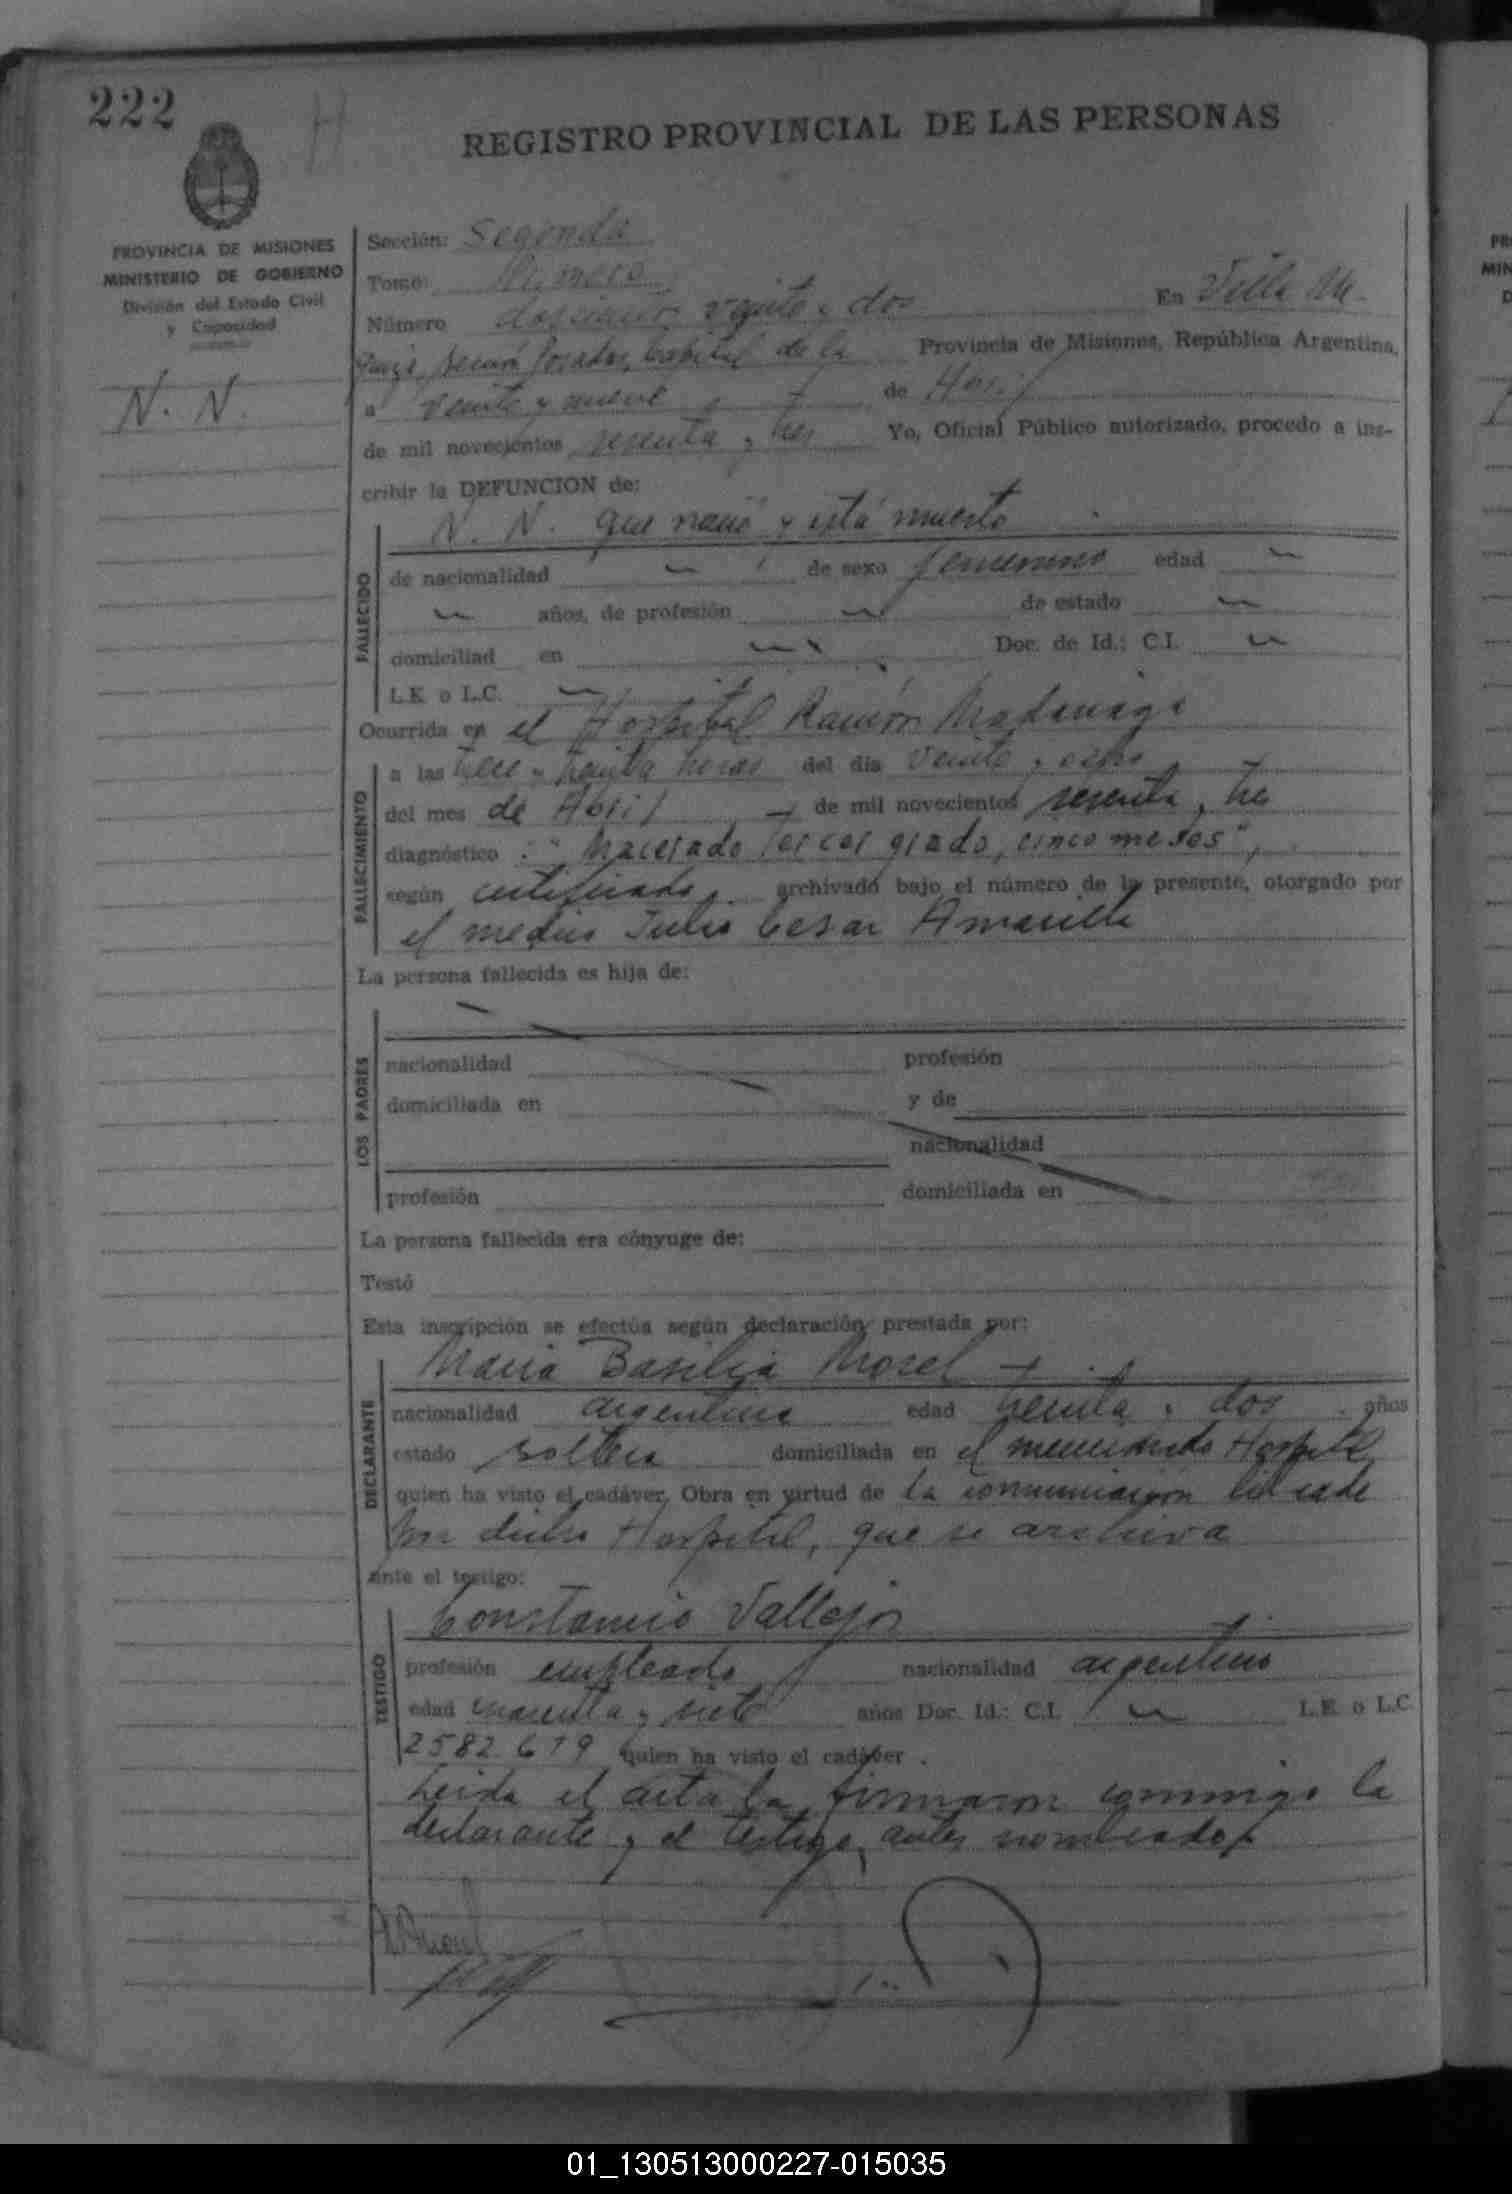 222
H
REGISTRO PROVINCIAL DE LAS PERSONAS
PROVINCIA DE MISIONES
MINISTERIO DE GOBIERNO
División del Estado Civil
y Capacidad
N. N.
Sección: Segunda
Tomo: Primero
Número doscientos veinte y dos En Villa
Capital de la Provincia de Misiones, República Argentina,
a veinte y nueve de Abril
de mil novecientos sesenta y tres Yo, Oficial Público autorizado, procedo a ins-
cribir la DEFUNCION de:
N. N. que nació y está muerto
FALLECIDO
de nacionalidad de sexo femenino edad
años, de profesión de estado
domiciliad en Doc. de Id.: C.I.
L.E. o L.C.
Ocurrida en el Hospital Ramón Madariaga
FALLECIMIENTO
a las trece y treinta horas del dia veinte y ocho
del mes de Abril de mil novecientos sesenta y tres
diagnóstico : "Macerado tercer grado, cinco meses",
según certificado archivado bajo el número de la presente, otorgado por
el medico Julio Cesar Amarilla
La persona fallecida es hija de:
LOS PADRES
nacionalidad profesión
domiciliada en y de
nacionalidad
profesión domiciliada en
La persona fallecida era cónyuge de:
Testó
Esta inscripción se efectúa según declaración prestada por:
DECLARANTE
Maria Basilia Morel
nacionalidad argentina edad treinta y dos años
estado soltera domiciliada en el mencionado Hospital
quien ha visto el cadáver. Obra en virtud de la comunicación
por dicho Hospital, que se archiva
ante el testigo:
TESTIGO
Constancio Vallejos
profesión empleado nacionalidad argentino
edad cuarenta y siete años Doc. Id.: C.I. L.E. o L.C.
2582.619 quien ha visto el cadáver .
Leida el acta la firmaron conmigo la
declarante y el testigo, antes nombrados
01_130513000227-015035